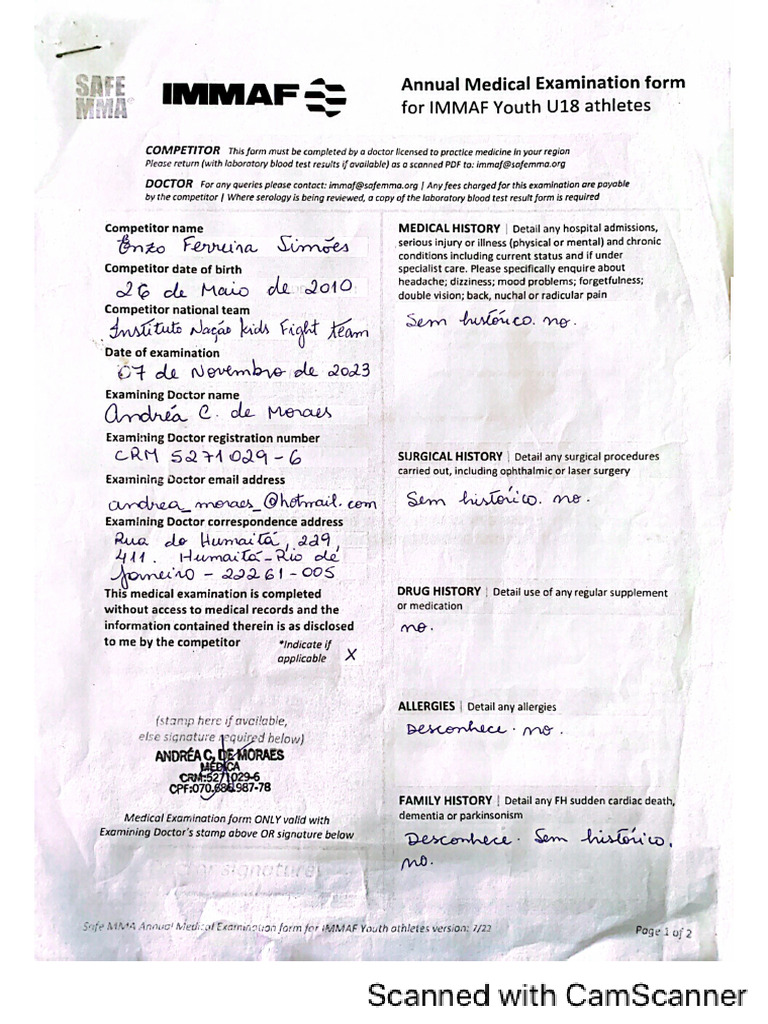 SAFE
MMA
IMMAF
Annual Medical Examination form
for IMMAF Youth U18 athletes
COMPETITOR This form must be completed by a doctor licensed to practice medicine in your region
Please return (with laboratory blood test results if available) as a scanned PDF to: immaf@safemma.org
DOCTOR For any queries please contact: immaf@safemma.org | Any fees charged for this examination are payable
by the competitor | Where serology is being reviewed, a copy of the laboratory blood test result form is required
Competitor name
Enzo Ferreira Simões
Competitor date of birth
26 de Maio de 2010
Competitor national team
Instituto Nação kids Fight team
Date of examination
07 de Novembro de 2023
Examining Doctor name
Andréa C. de Moraes
Examining Doctor registration number
CRM 5271029-6
Examining Doctor email address
andrea_moraes_@hotmail.com
Examining Doctor correspondence address
Rua do Humaitá, 229,
411. Humaitá-Rio de
Janeiro - 22261-005
This medical examination is completed
without access to medical records and the
information contained therein is as disclosed
to me by the competitor
*Indicate if
applicable X
(stamp here if available,
else signature required below)
ANDRÉA C. DE MORAES
MÉDICA
CRM:5271029-6
Medical Examination form ONLY valid with
Examining Doctor's stamp above OR signature below
signature)
MEDICAL HISTORY | Detail any hospital admissions,
serious injury or illness (physical or mental) and chronic
conditions including current status and if under
specialist care. Please specifically enquire about
headache; dizziness; mood problems; forgetfulness;
double vision; back, nuchal or radicular pain
Sem histórico. no.
SURGICAL HISTORY | Detail any surgical procedures
carried out, including ophthalmic or laser surgery
Sem histórico. no.
DRUG HISTORY | Detail use of any regular supplement
or medication
no.
ALLERGIES | Detail any allergies
Desconhece. no.
FAMILY HISTORY | Detail any FH sudden cardiac death,
dementia or parkinsonism
Desconhece. Sem histórico.
no.
Safe MMA Annual Medical Examination form for IMMAF Youth athletes version: 7/22
Page 1 of 2
Scanned with CamScanner